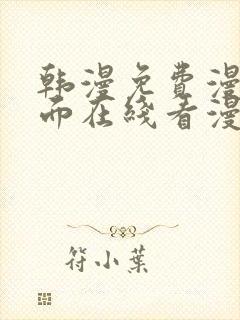 韩漫免费漫
面在线看漫
符小葉